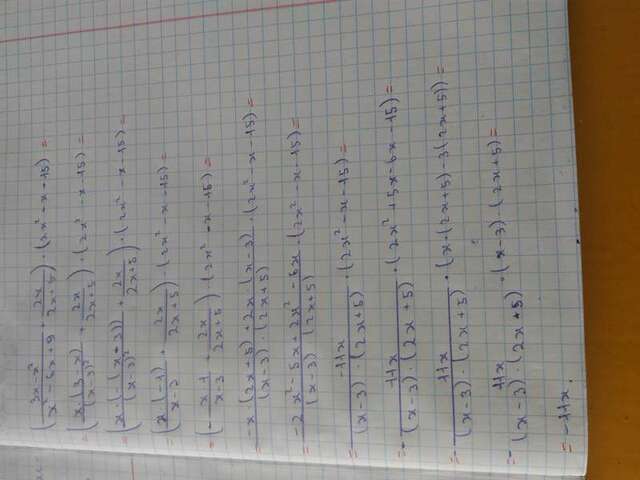 (3x-x²/x²-6x+9 + 2x/2x+5)·(2x²-x-15)=
=(x·(3-x)/(x-3)² + 2x/2x+5)·(2x²-x-15)=
=(x·(-(x-3))/(x-3)² + 2x/2x+5)·(2x²-x-15)=
=(x·(-1)/x-3 + 2x/2x+5)·(2x²-x-15)=
=(-x·1/x-3 + 2x/2x+5)·(2x²-x-15)=
=-x·(2x+5)+2x·(x-3)/(x-3)·(2x+5)·(2x²-x-15)=
=-2x²-5x+2x²-6x/(x-3)·(2x+5)·(2x²-x-15)=
=-11x/(x-3)·(2x+5)·(2x²-x-15)=
=-11x/(x-3)·(2x+5)·(2x²+5x-6x-15)=
=-11x/(x-3)·(2x+5)·(x·(2x+5)-3(2x+5))=
=-11x/(x-3)·(2x+5)·(x-3)·(2x+5)=
=-11x.